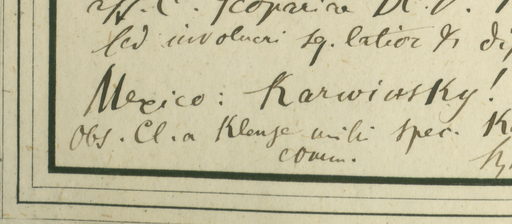 aff. C. scoparia DC. V.
sed involucri sq. latior &
Mexico: Karwinsky!
Obs. Cl. a Klenze mihi spec. K
comm.